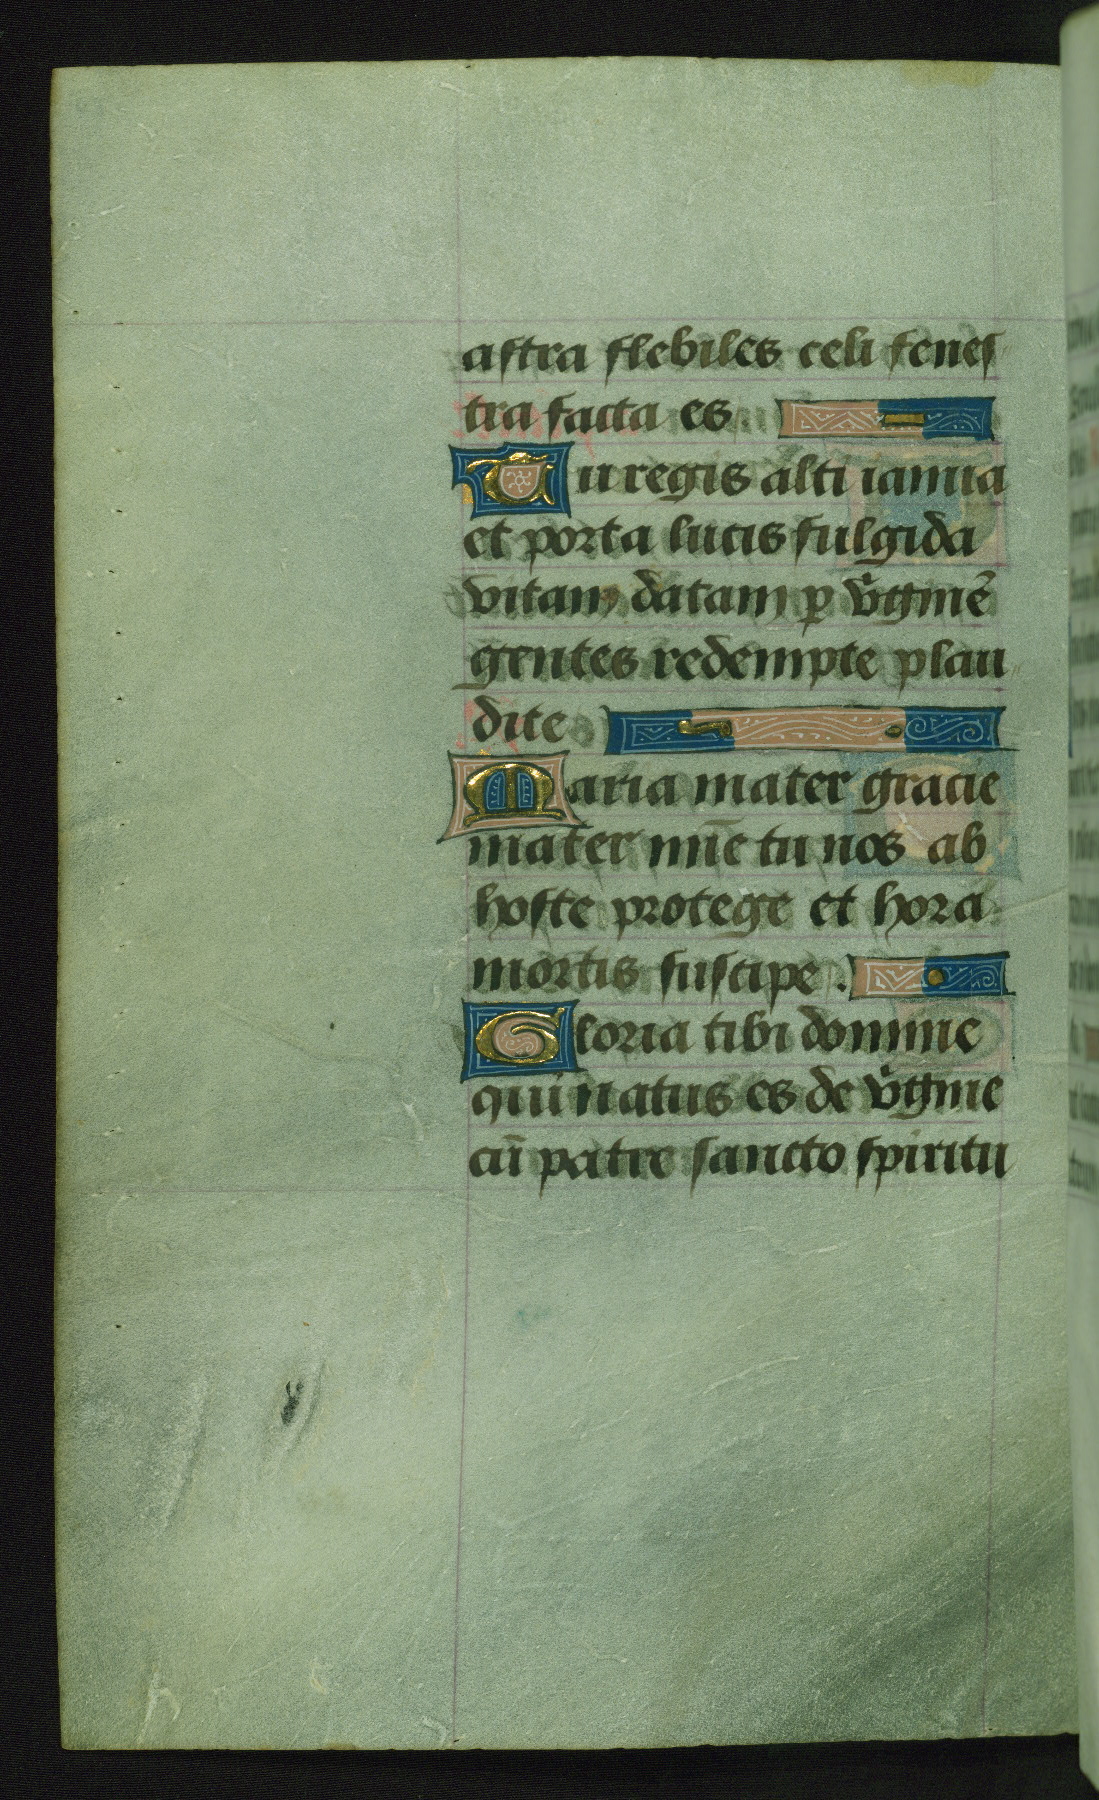 astra flebiles celi fenes
tra facta es.
Tu regis alti ianua
et porta lucis fulgida
vitam datam ꝑ v̊ginē
gentes redempte plau
dite
Maria mater gracie
mater mīe tu nos ab
hoste protege et hora
mortis suscipe.
Gloria tibi domine
qui natus es de v̊gine
cū patre sancto spiritu